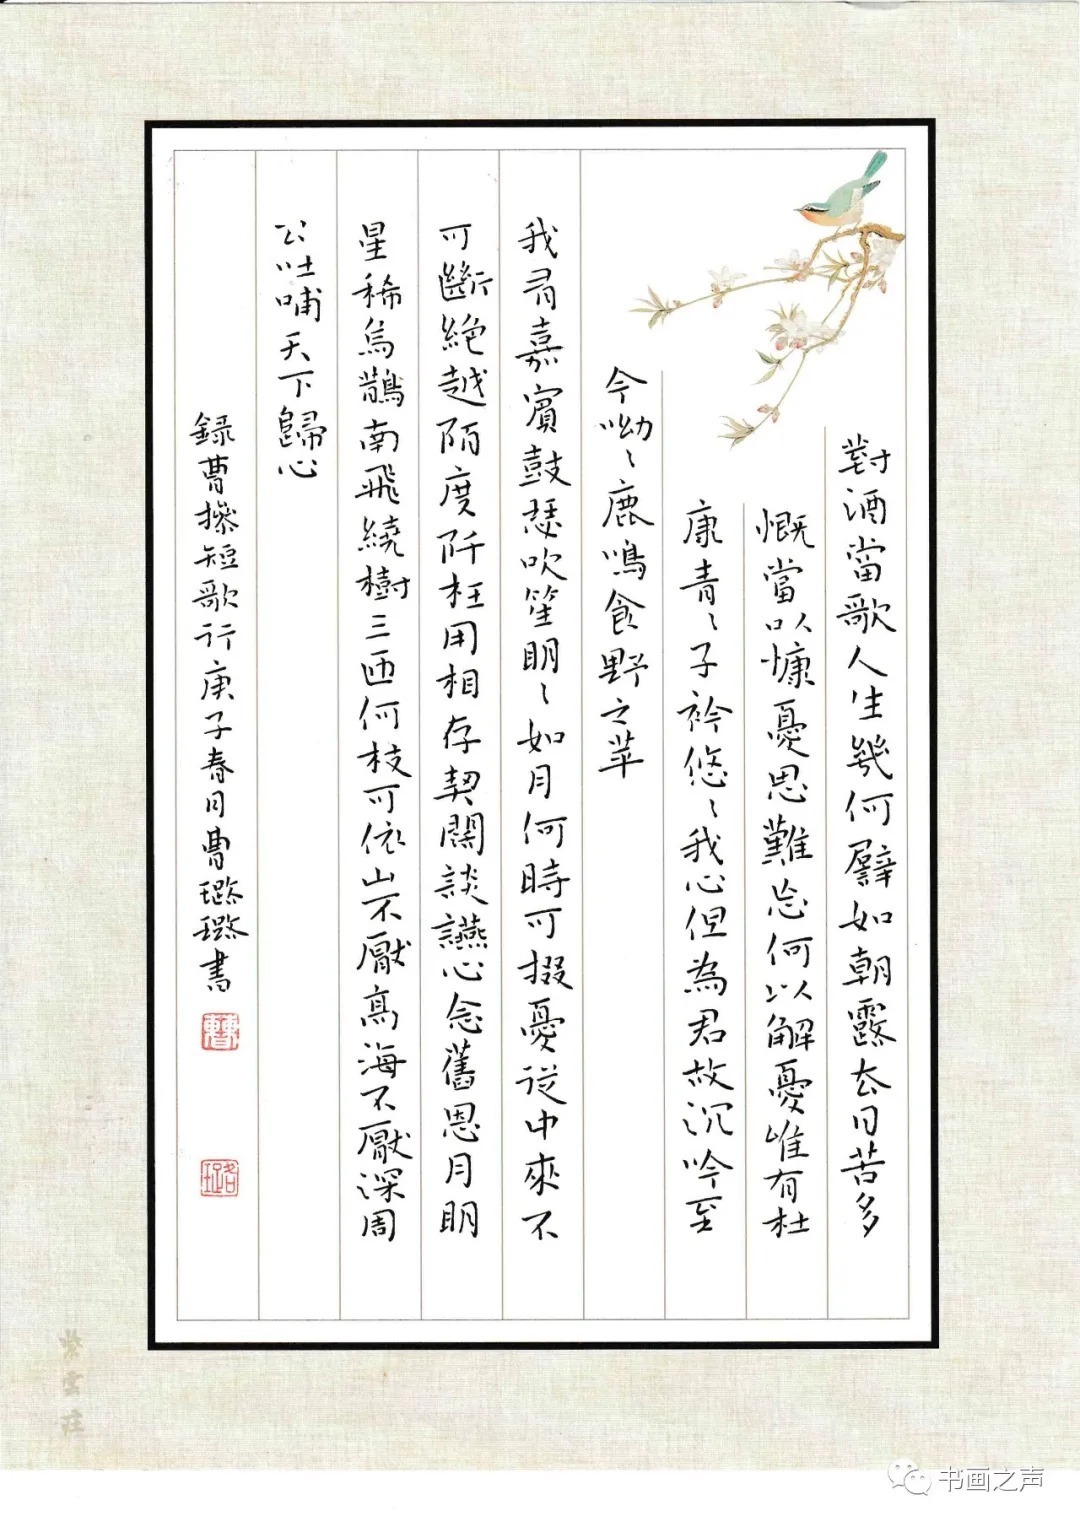 對酒當歌人生幾何譬如朝露去日苦多
慨當以慷憂思難忘何以解憂唯有杜
康青〻子衿悠〻我心但為君故沉吟至
今呦〻鹿鳴食野之苹
我有嘉賓鼓瑟吹笙明〻如月何時可掇憂從中來不
可斷絕越陌度阡枉用相存契闊談讌心念舊恩月明
星稀烏鵲南飛繞樹三匝何枝可依山不厭高海不厭深周
公吐哺天下歸心
錄曹操短歌行庚子春月曹璐璐書
曹
璐
紫雲莊
书画之声